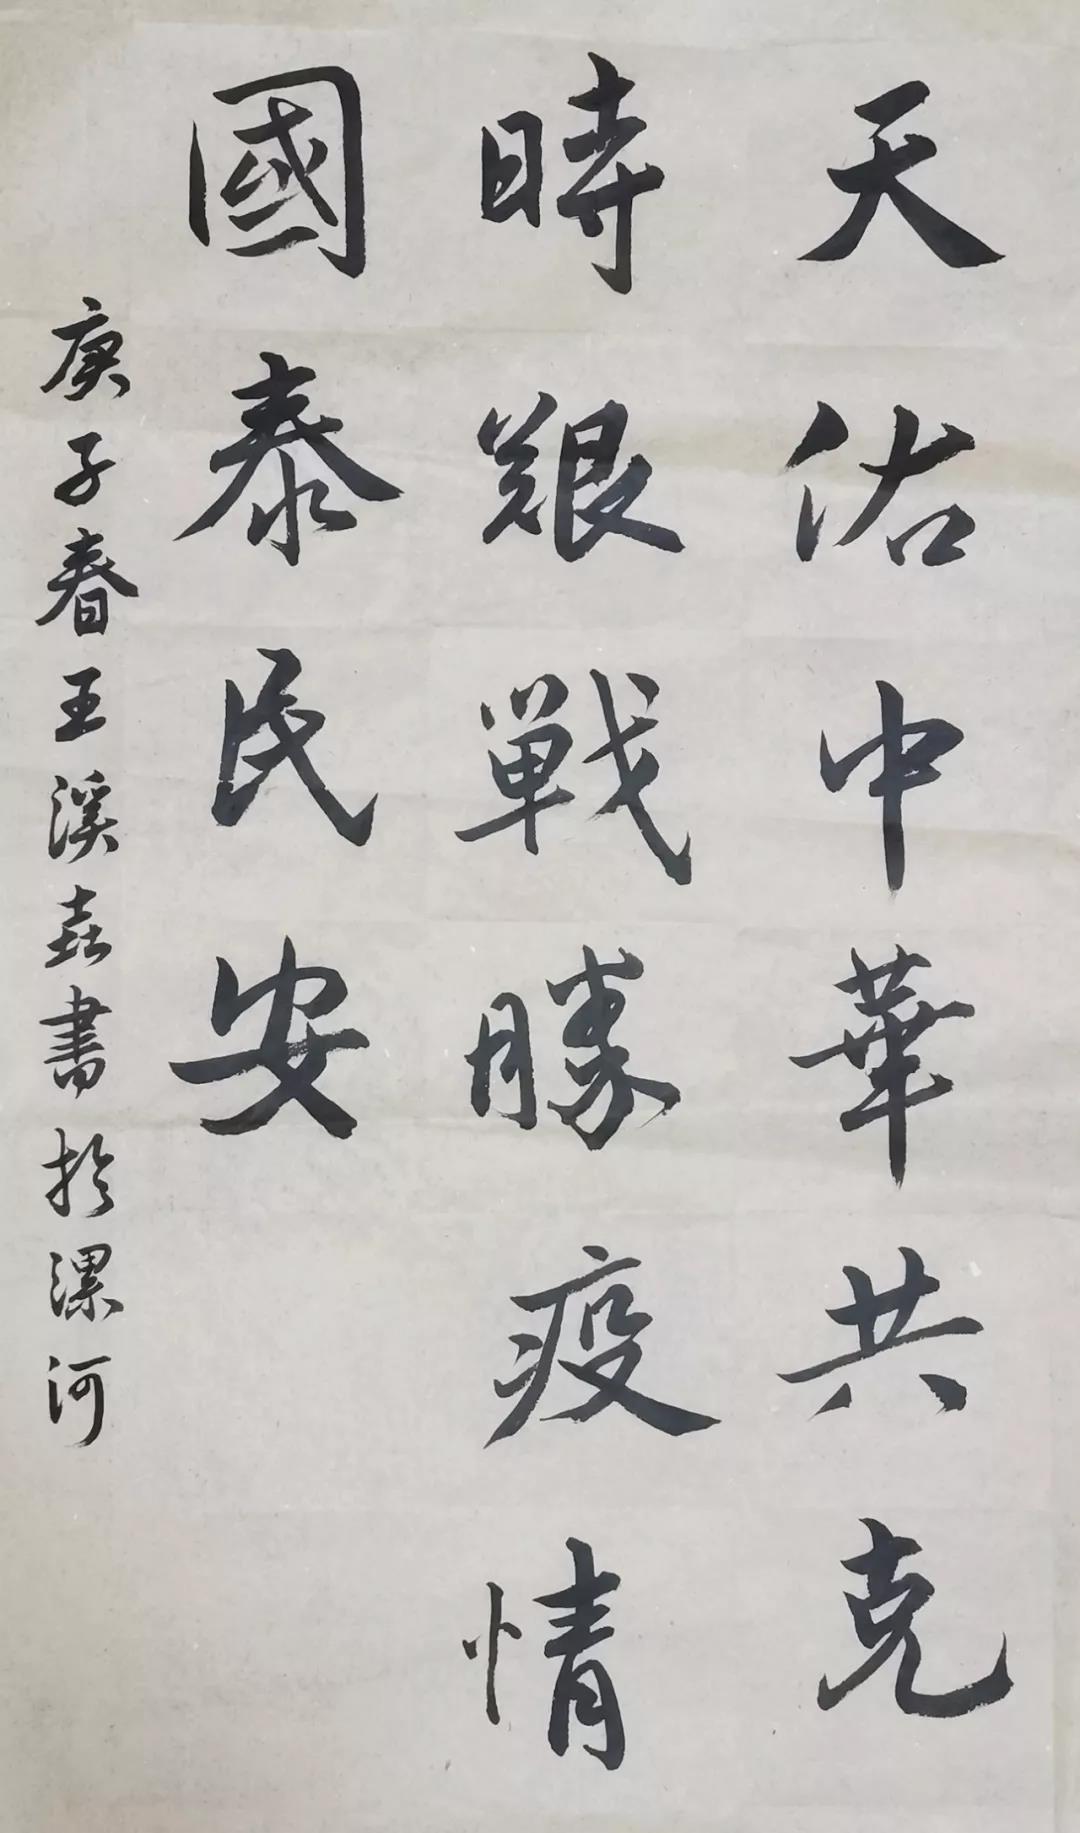 天佑中華共克
時艱戰勝疫情
國泰民安
庚子春王溪垚書於漯河